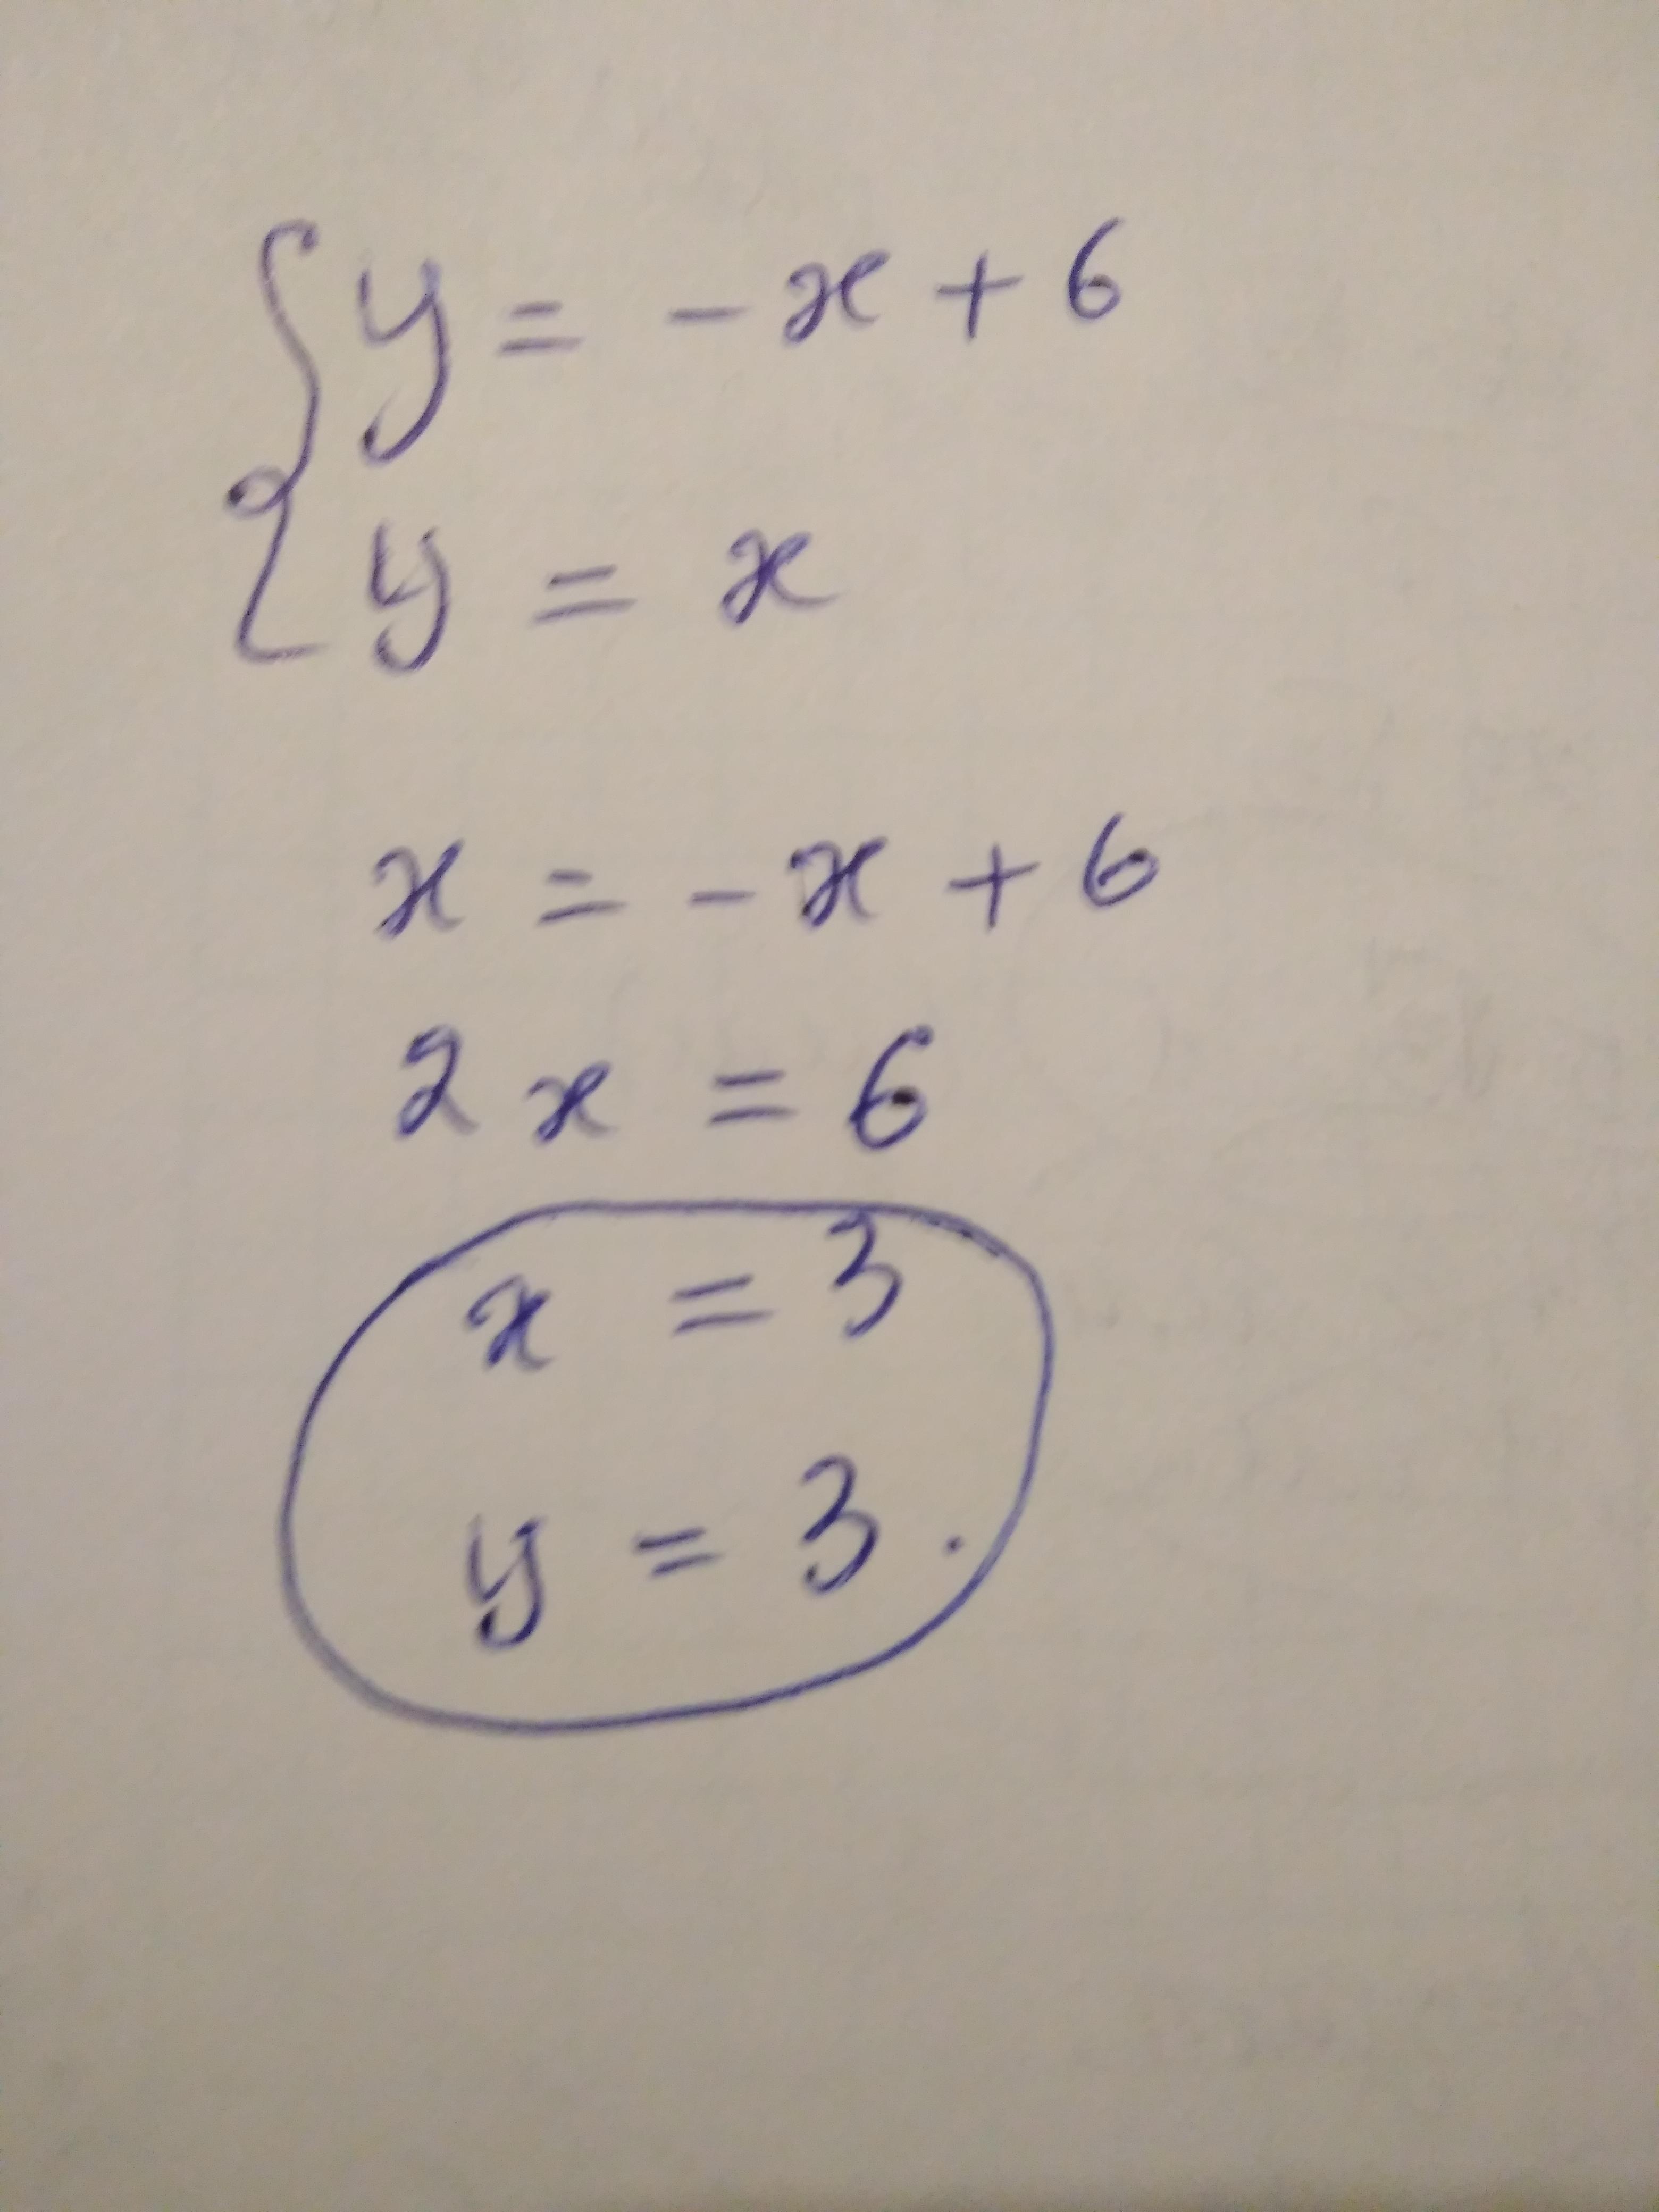 y = - x + 6
y = x
x = - x + 6
2 x = 6
x = 3
y = 3 .